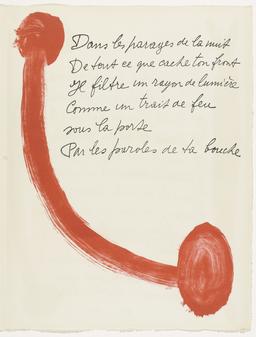 Dans les parages de la nuit
De tout ce que cache ton front
Il filtre un rayon de lumière
Comme un trait de feu
sous la porte
Par les paroles de ta bouche